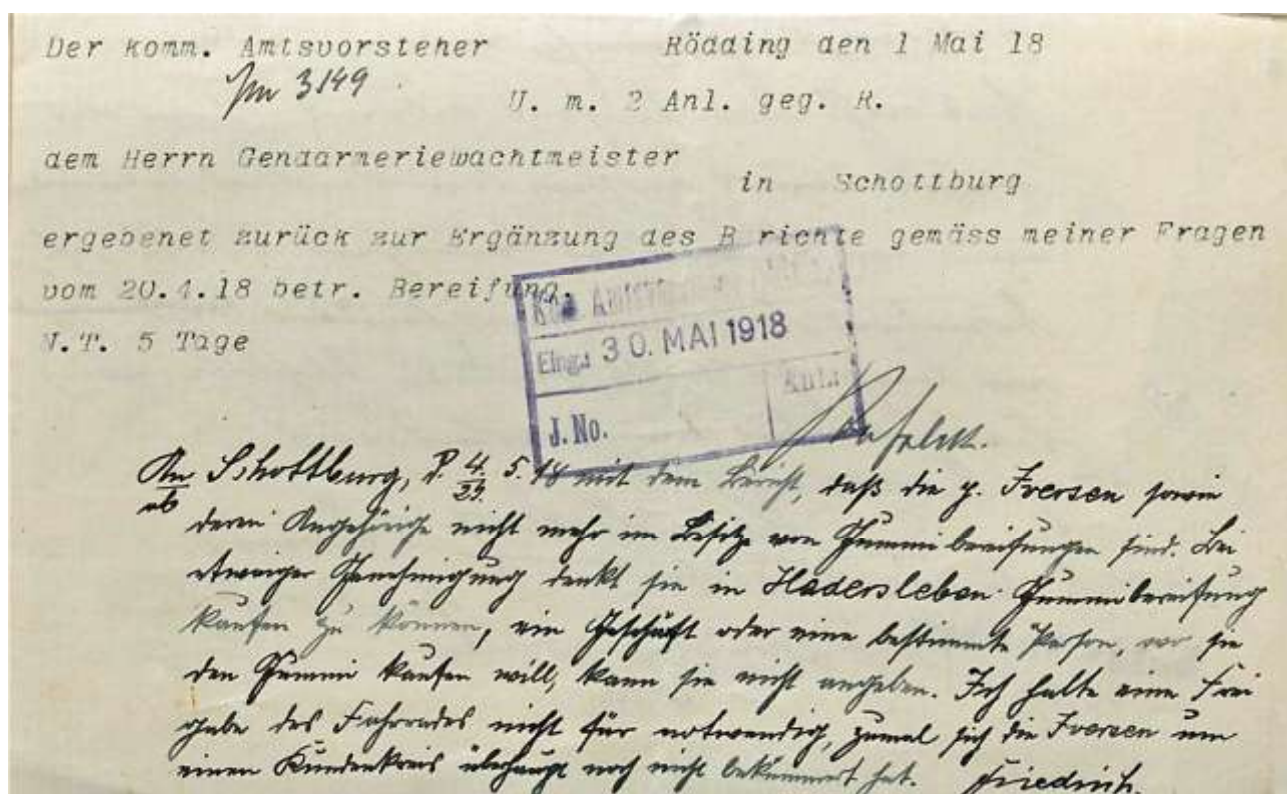 Der komm. Amtsvorsteher Rödding den 1 Mai 18
3149
U. m. 2 Anl. geg. R.
dem Herrn Gendarmeriewachtmeister
in Schottburg
ergebenet zurück zur Ergänzung des B richte gemäss meiner Fragen
vom 20.4.18 betr. Bereifung.
N.T. 5 Tage
Eing.: 30. MAI 1918
Anl.:
J. No.
Schottburg, d. 4. 5. 18 mit dem Bericht, daß die p. Iversen sowie
29.
ab
deren Angehörige nicht mehr im Besitze von Gummibereifungen sind. Bei
etwaiger Genehmigung denkt sie in Hadersleben Gummibereifung
kaufen zu können, ein Geschäft oder eine bestimmte Person, wo sie
den Gummi kaufen will, kann sie nicht angeben. Ich halte eine Frei
gabe des Fahrrades nicht für notwendig, zumal sich die Iversen um
einen Kundenkreis überhaupt noch nicht bekümmert hat. Friedrich.